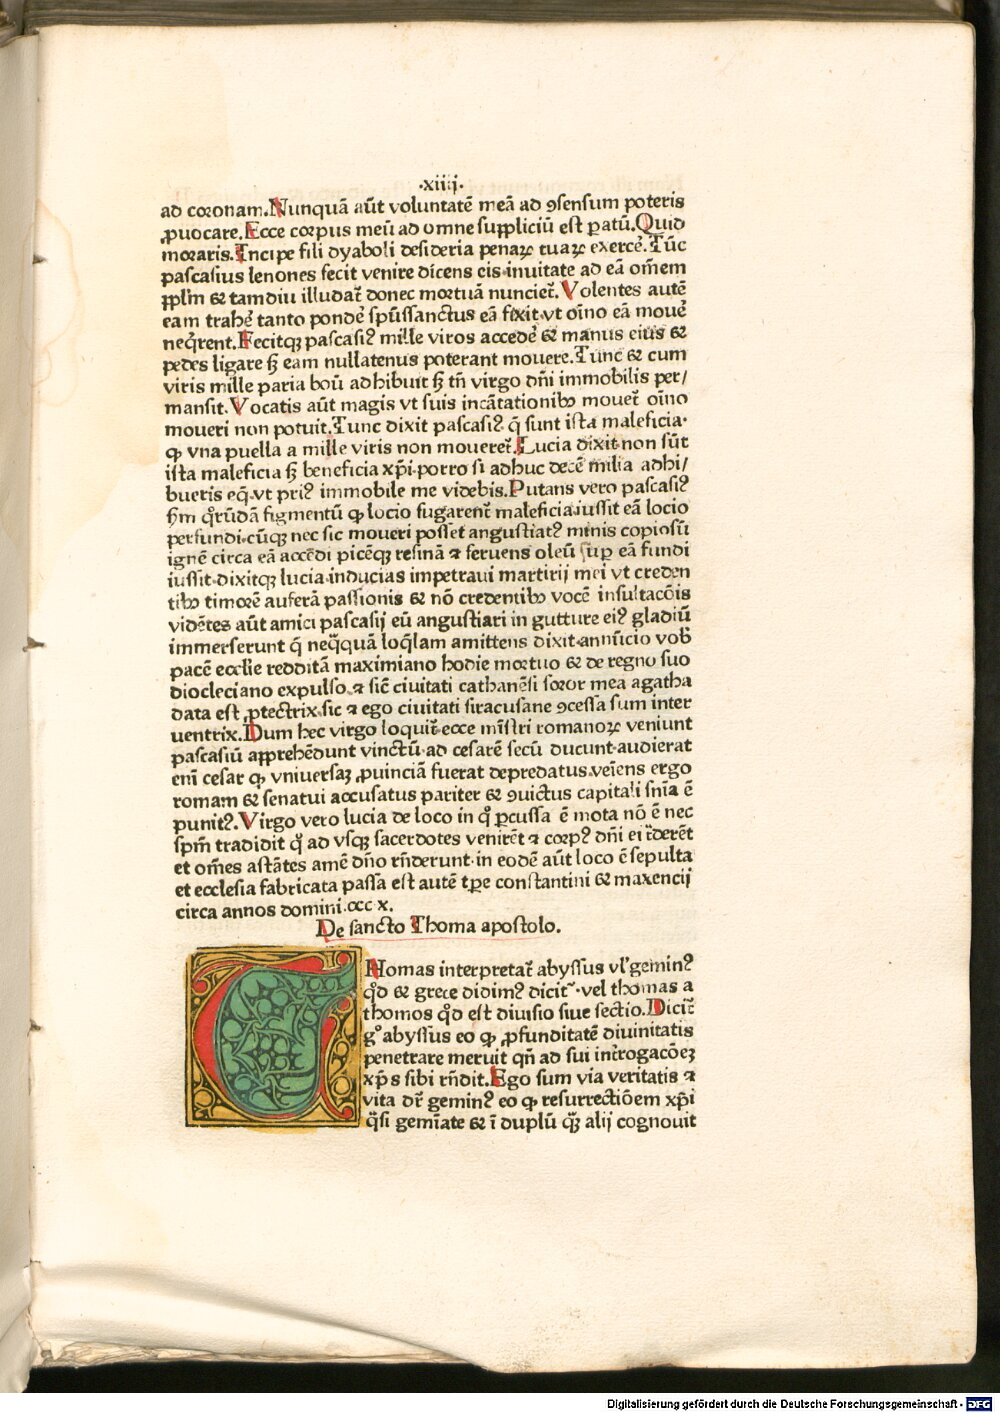 ·xiiij·
ad coronam.Nunquā aūt voluntatē meā ad ꝯsensum poteris
ꝓuocare.Ecce corpus meū ad omne suppliciū est patū.Quid
moraris.Incipe fili dyaboli desideria penaꝝ tuaꝝ exerce᷑.Tūc
pascasius lenones fecit venire dicens eis·inuitate ad eā om̄em
pplm̄ & tamdiu illudat᷑ donec mortuā nunciet᷑.Volentes autē
eam trahe᷑ tanto ponde᷑ spūssanctus eā fixit·vt oīno eā moue᷑
neq̄rent.Fecitqꝫ pascasiꝰ mille viros accede᷑ & manus eius &
pedes ligare sꝫ eam nullatenus poterant mouere.Tunc & cum
viris mille paria boū adhibuit sꝫ tn̄ virgo dn̄i immobilis per/
mansit.Vocatis aūt magis vt suis incātationibꝰ mouet᷑ oīno
moueri non potuit.Tunc dixit pascasiꝰ q̄ sunt ista maleficia·
ꝙ vna puella a mille viris non moueret᷑.Lucia dixit·non sūt
ista maleficia sꝫ beneficia xp̄i·porro si adhuc decē milia adhi/
bueris eq̄·vt priꝰ immobile me videbis.Putans vero pascasiꝰ
ẜm q̊rūdā figmentū ꝙ locio fugarent᷑ maleficia·iussit eā locio
perfundi·cūqꝫ nec sic moueri posset angustiatꝰ nimis copiosū
ignē circa eā accēdi picēqꝫ resinā ⁊ feruens oleū sup eā fundi
iussit·dixitqꝫ lucia·inducias impetraui martirij mei vt creden
tibꝰ timorē auferā passionis & nō credentibꝰ vocē insultacōis
vidētes aūt amici pascasij eū angustiari in gutture eiꝰ gladiū
immerserunt q̄ neq̄quā loq̄lam amittens dixit·annūcio vob̄
pacē eccl̄ie redditā maximiano hodie mortuo & de regno suo
diocleciano expulso.⁊ sic̄ ciuitati cathanēsi soror mea agatha
data est ꝓtectrix·sic ⁊ ego ciuitati siracusane ꝯcessa sum inter
uentrix.Dum hec virgo loquit᷑·ecce mīstri romanoꝝ veniunt
pascasiū apprehēdunt vinctū·ad cesarē secū ducunt·audierat
eni̅ cesar ꝙ vniuersaꝫ ꝓuinciā fuerat depredatus.veīens ergo
romam & senatui accusatus pariter & ꝯuictus capitali sn̄ia ē
punitꝰ.Virgo vero lucia de loco in q̊ ꝑcussa ē mota nō ē nec
spm̄ tradidit q̊ ad vsqꝫ sacerdotes venirēt ⁊ corpꝰ dn̄i ei t᷑derēt
et om̄es astātes amē dn̄o rn̄derunt·in eodē aūt loco ē sepulta
et ecclesia fabricata passa est autē tꝑe constantini & maxencij
circa annos domini.ccc x.
De sancto Thoma apostolo.
THomas interpretat᷑ abyssus vl̓ geminꝰ
qd̓ & grece didimꝰ dicit᷑·vel thomas a
thomos qd̓ est diuisio siue sectio.Dicit᷑
gͦ abyssus eo ꝙ ꝓfunditatē diuinitatis
penetrare meruit qn̄ ad sui int᷑rogacōeꝫ
xp̄s sibi rn̄dit.Ego sum via veritatis ⁊
vita dr̄ geminꝰ eo ꝙ resurrectiōem xp̄i
q̄si gemīate & ī duplū qꝫ alij cognouit
Digitalisierung gefördert durch die Deutsche Forschungsgemeinschaft - DFG